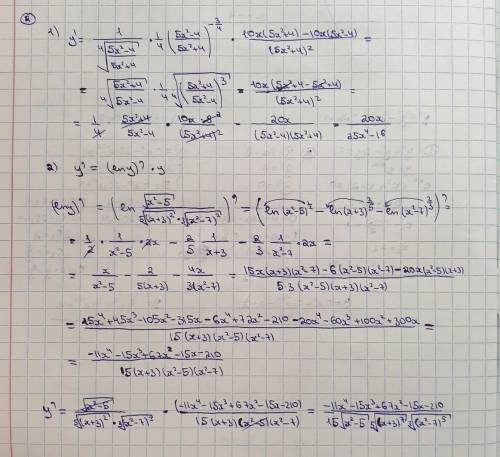 ②
1) y' = 1/∜((5x²-4)/(5x²+4)) · 1/4 ((5x²-4)/(5x²+4))^(-3/4) · (10x(5x²+4)-10x(5x²-4))/(5x²+4)² =
= ∜((5x²+4)/(5x²-4)) · 1/4 ∜((5x²+4)/(5x²-4))³ · (10x(5x²+4-5x²+4))/(5x²+4)² =
= 1/4 · (5x²+4)/(5x²-4) · (10x·8²)/(5x²+4)² = 20x/((5x²-4)(5x²+4)) = 20x/(25x⁴-16)
2) y' = (ln y)' · y
(ln y)' = (ln √(x²-5)/(⁵√(x+3)² · ³√(x²-7)²))' = (ln(x²-5)^(1/2) - ln(x+3)^(2/5) - ln(x²-7)^(2/3))' =
= 1/2 · 1/(x²-5) · 2x - 2/5 · 1/(x+3) - 2/3 · 1/(x²-7) · 2x =
= x/(x²-5) - 2/(5(x+3)) - 4x/(3(x²-7)) = (15x(x+3)(x²-7)-6(x²-5)(x²-7)-20x(x²-5)(x+3))/(5·3(x²-5)(x+3)(x²-7))
= (15x⁴+45x³-105x²-315x-6x⁴+72x²-210-20x⁴-60x³+100x²+300x)/(15(x+3)(x²-5)(x²-7)) =
= (-11x⁴-15x³+67x²-15x-210)/(15(x+3)(x²-5)(x²-7))
y' = √(x²-5)/(⁵√(x+3)² · ³√(x²-7)²) · (-11x⁴-15x³+67x²-15x-210)/(15(x+3)(x²-5)(x²-7)) = (-11x⁴-15x³+67x²-15x-210)/(15√(x²-5) ⁵√(x+3)⁷ ³√(x²-7)⁵)